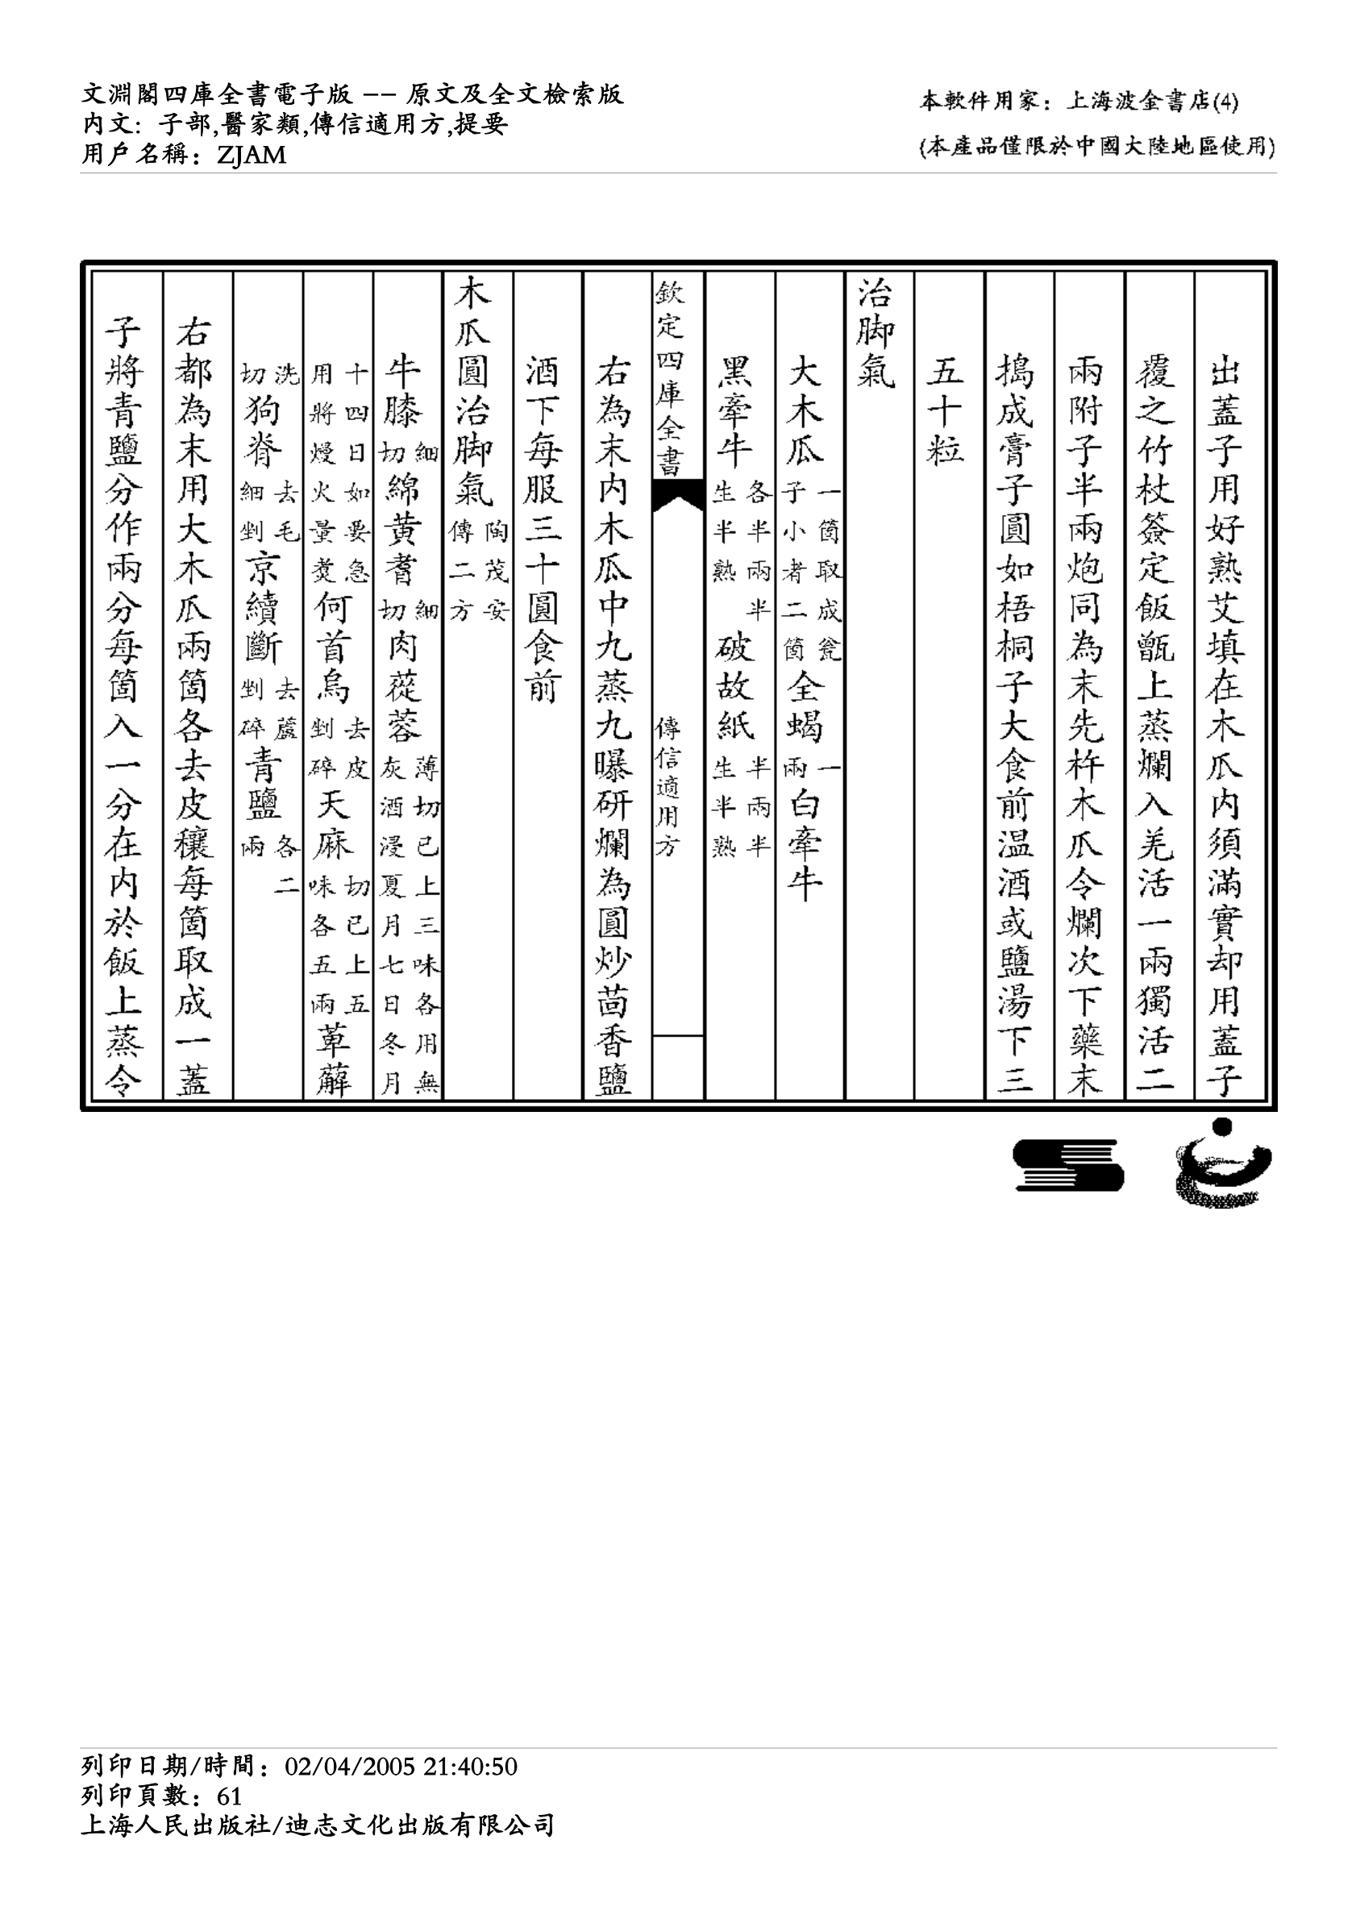 文淵閣四庫全書電子版 —— 原文及全文檢索版
内文：子部,醫家類,傳信適用方,提要
用戶名稱：ZJAM
本軟件用家：上海波金書店(4)
(本產品僅限於中國大陸地區使用)
出蓋子用好熟艾填在木瓜内須滿實却用蓋子
覆之竹杖簽定飯甑上蒸爛入羌活一兩獨活二
兩附子半兩炮同為末先杵木瓜令爛次下藥末
搗成膏子圓如梧桐子大食前温酒或鹽湯下三
五十粒
治脚氣
大木瓜一箇取成瓮子小者二箇全蝎一兩白牽牛
黑牽牛各半兩半生半熟破故紙半兩半生半熟
欽定四庫全書 傳信適用方
右為末内木瓜中九蒸九曝研爛為圓炒茴香鹽
酒下每服三十圓食前
木瓜圓治脚氣陶茂安傳二方
牛膝細切綿黄耆細切肉蓯蓉薄切已上三味各用無灰酒浸夏月七日冬月
十四日如要急用將熳火量煑何首烏去皮剉碎天麻切已上五味各五兩萆薢
洗切狗脊去毛細剉京續斷去蘆剉碎青鹽各二兩
右都為末用大木瓜兩箇各去皮穰每箇取成一蓋
子將青鹽分作兩分每箇入一分在内於飯上蒸令
列印日期/時間：02/04/2005 21:40:50
列印頁數：61
上海人民出版社/迪志文化出版有限公司